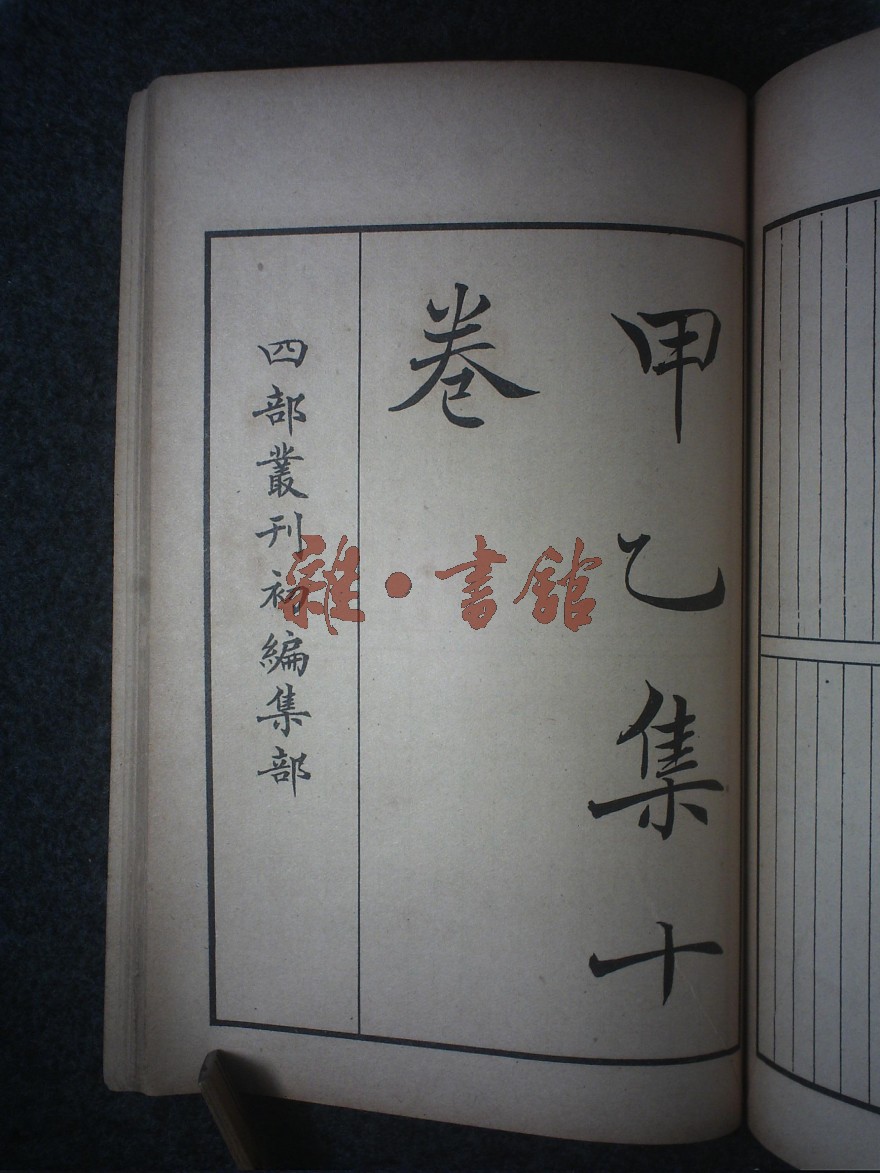 甲乙集十
卷
四部叢刊初編集部
雜·書館